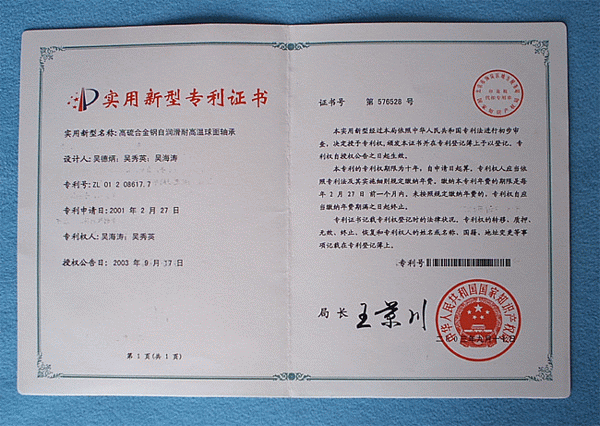 实用新型专利证书
实用新型名称: 高硫合金钢自润滑耐高温球面轴承
设计人: 吴德炳; 吴秀英; 吴海涛
专利号: ZL 01 2 08617.7
专利申请日: 2001 年 2 月 27 日
专利权人: 吴海涛; 吴秀英
授权公告日: 2003 年 9 月 17 日
第 1 页(共 1 页)
证书号 第 576528 号
本实用新型经过本局依照中华人民共和国专利法进行初步审
查, 决定授予专利权, 颁发本证书并在专利登记簿上予以登记. 专
利权自授权公告之日起生效.
本专利的专利权期限为十年, 自申请日起算. 专利权人应当依
照专利法及其实施细则规定缴纳年费. 缴纳本专利年费的期限是每
年 2 月 27 日前一个月内. 未按照规定缴纳年费的, 专利权自应
当缴纳年费期满之日起终止.
专利证书记载专利权登记时的法律状况. 专利权的转移、质押、
无效、终止、恢复和专利权人的姓名或名称、国籍、地址变更等事
项记载在专利登记簿上.
专利号
局长 王景川
中华人民共和国国家知识产权局
二〇〇三年九月十七日